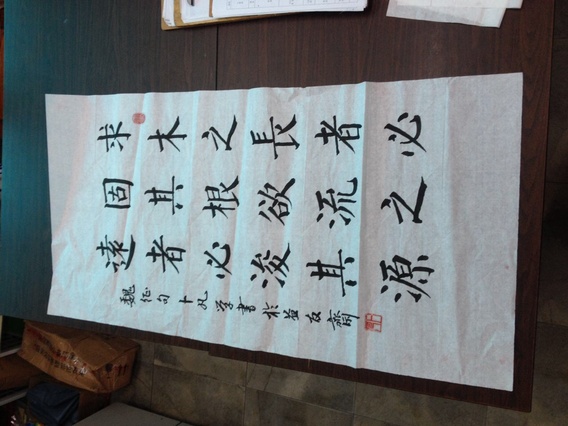 求木之長者必
固其根欲流之
遠者必浚其源
魏征句 十 学書於益友齋